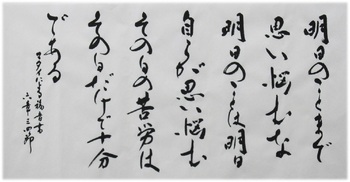 明日のことまで
思い悩むな
明日のことは明日
自らが思い悩む
その日の苦労は
その日だけで十分
である
マタイによる福音書
六章三四節